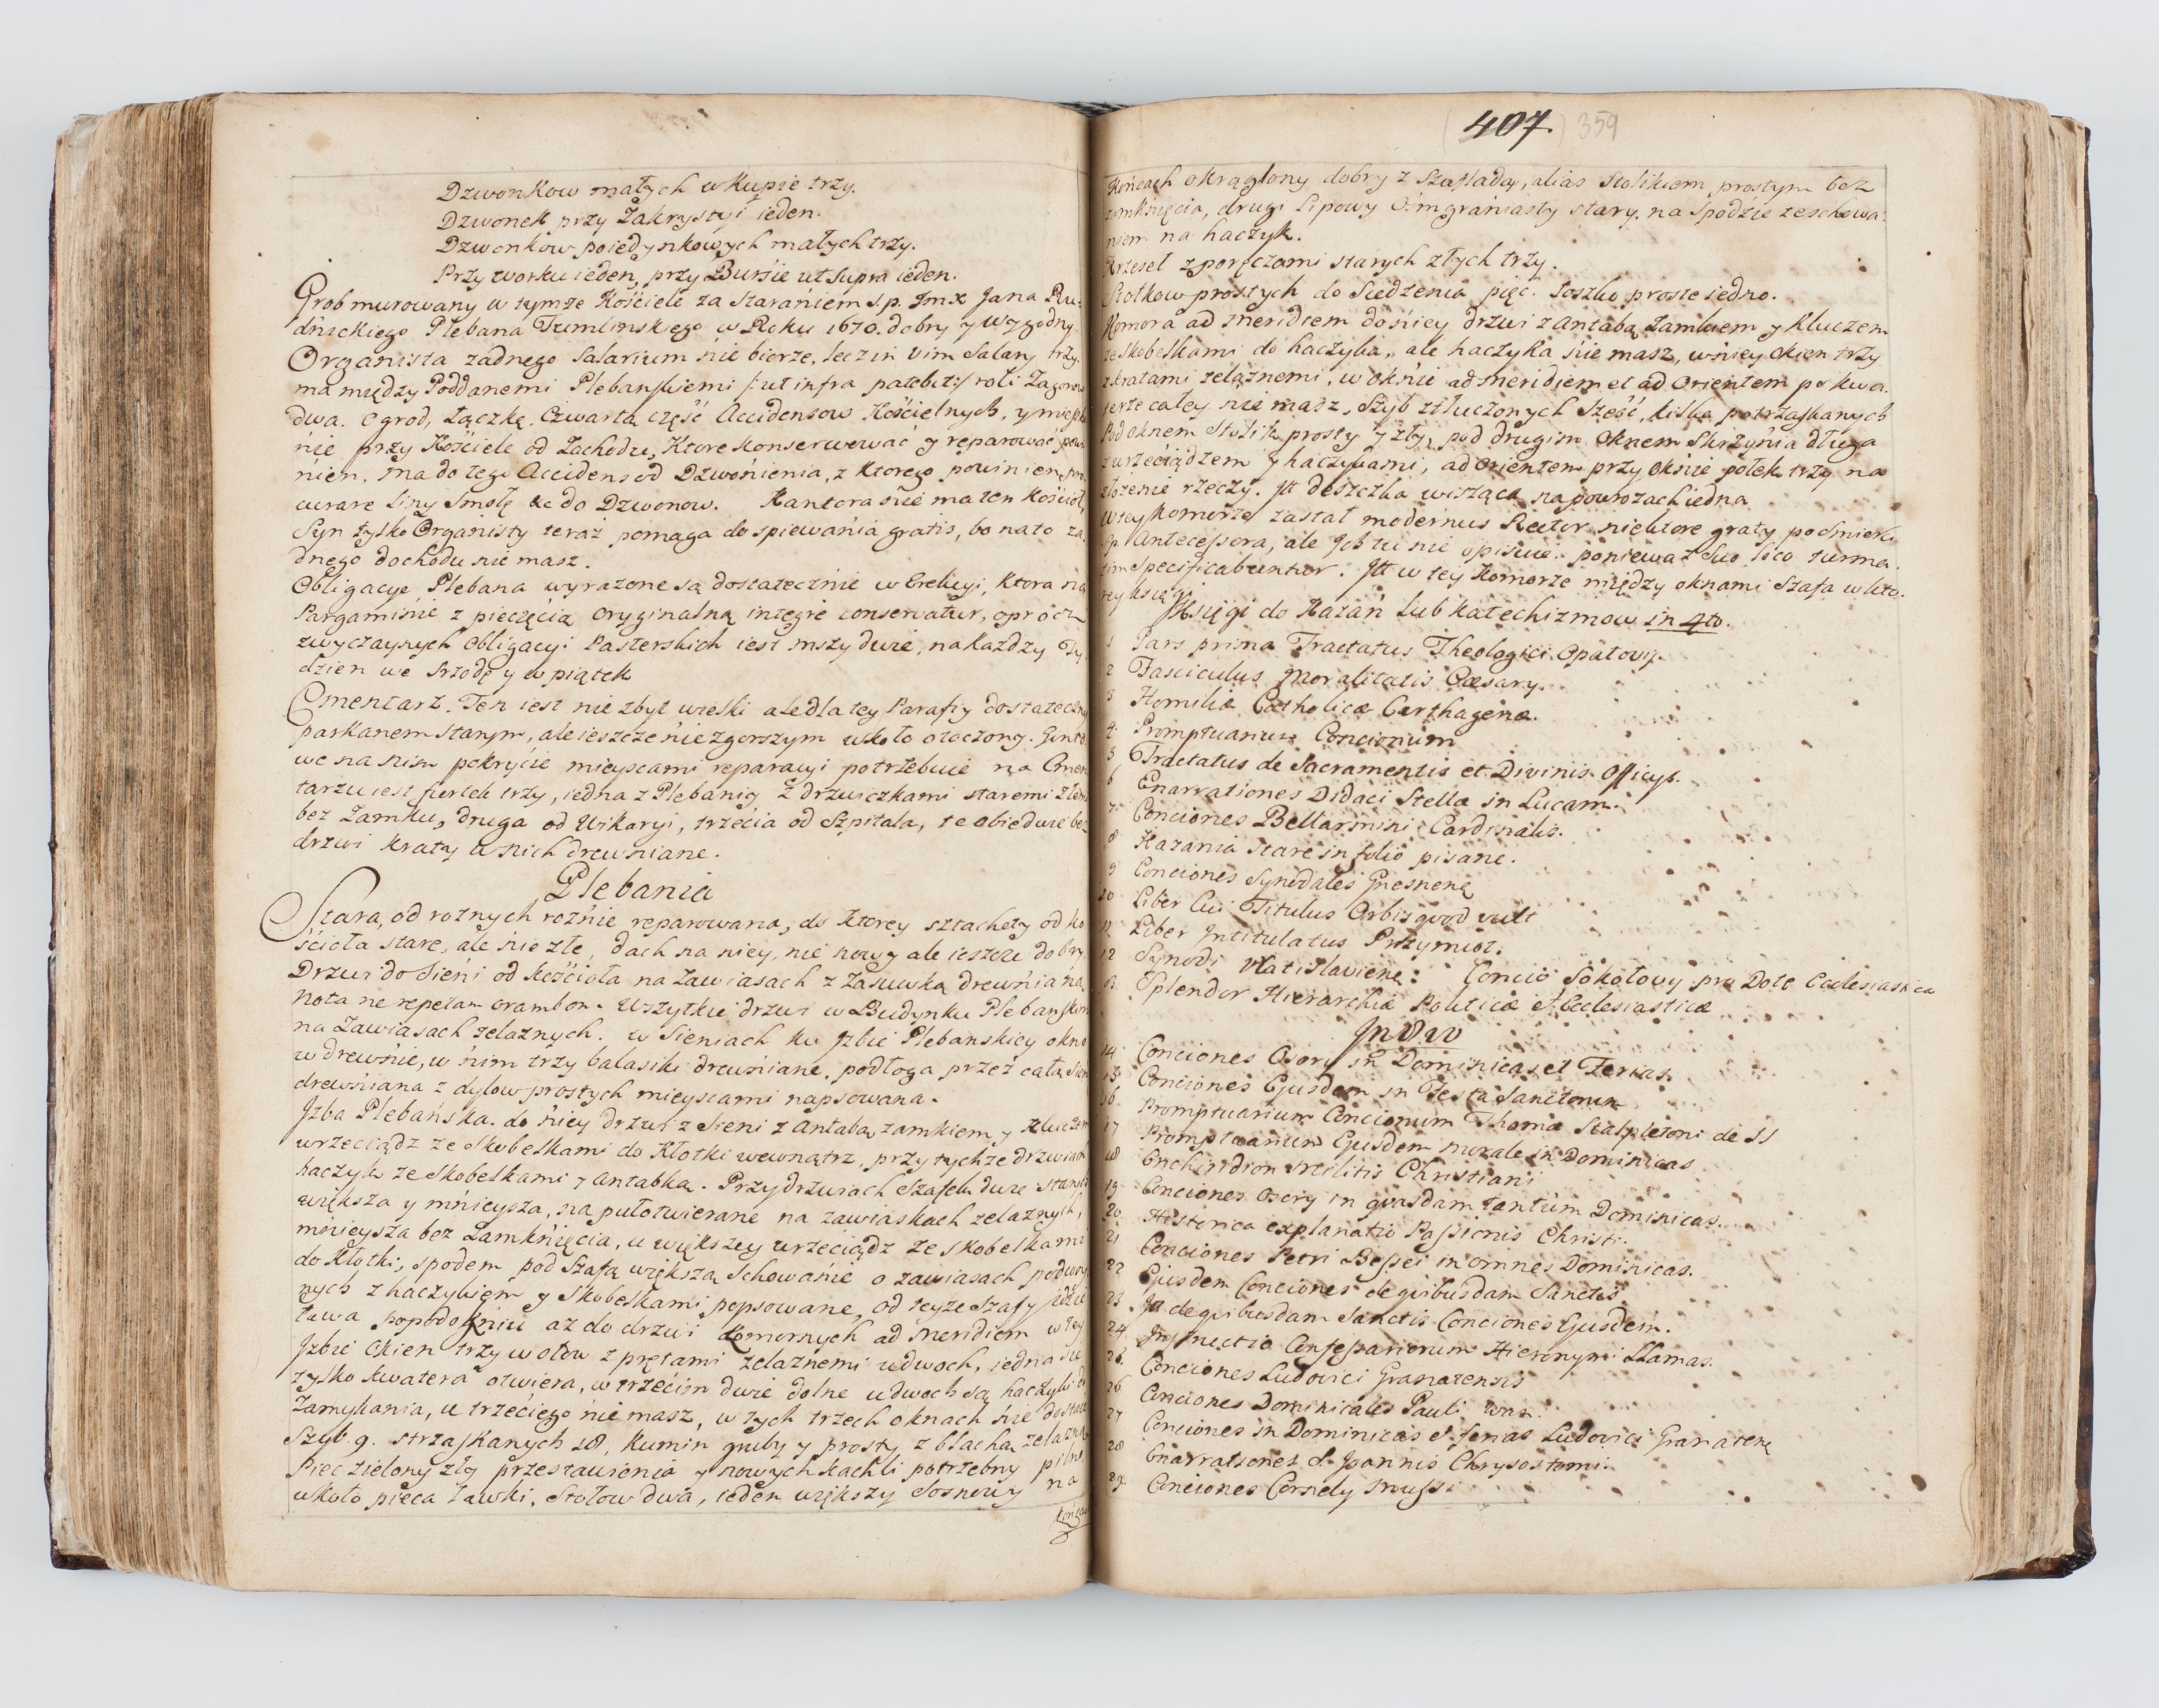 Dzwonkow małych w kupie trzy.
Dzwonek przy Zakrystyi ieden.
Dzwonkow poiedynkowych małych trzy.
Przy worku ieden, przy Bursie ut supra ieden.
Grob murowany w tymze Kościele za staraniem s.p. Jmx Jana Ru
dnickiego Plebana Tumlinskiego w Roku 1670. dobry y wygodny.
Organista zadnego Salarium nie bierze, lecz in vim Salary trzy
ma między Poddanemi Plebanskiemi /: ut infra patebit :/ roli Zagonow
dwa. Ogrod, Łączkę. Czwarta część Accidensow Kościelnych, y
nie przy Kościele od Zachodu, Ktore Konserwować y reparować powi
nien. ma do tego Accidens od Dzwonienia, z ktorego powinien pro
curare Liny Smołę &c do Dzwonow. Kantora nie ma ten Kościoł,
Syn tylko Organisty teraz pomaga do spiewania gratis, bo na to za
dnego dochodu nie masz.
Obligacye Plebana wyrazone są dostatecznie w Erekcyi, Ktora na
Pargaminie z pieczęcią Oryginalną integre conservatur, oprocz
zwyczaynych Obligacyi Pasterskich iest mszy dwie, na kazdy Ty
dzien we Srzodę y w piątek
Cmentarz. Ten iest nie zbyt wielki ale dla tey Parafiy dostateczny
parkanem starym, ale ieszcze niezgorszym wkoło otoczony. Gonto
we na nim pokrycie mieyscami reparacyi potrzebuie na Cmen
tarzu iest furtek trzy, iedna z Plebaniy z drzwiczkami staremi złemi
bez Zamku, druga od Wikaryi, trzecia od Szpitala, te obiedwie bez
drzwi kraty w nich drewniane.
Plebania
Stara, od roznych roznie reparowana, do Ktorey sztachety od ko
ścioła stare, ale nie złe, dach na niey, nie nowy ale ieszcze dobry
Drzwi do Sieni od kościoła na Zawiasach z Zasuwką drewnianą
Nota ne repetam crambon. Wszytkie drzwi w Budynku Plebanskim
na Zawiasach zelaznych. w Sieniach ku Jzbie Plebanskiey okno
w drewnie, w nim trzy balasiki drewniane. podłoga przez całą Sien
drewniana z dylow prostych mieyscami napsowana.
Jzba Plebańska. do niey drzwi z Sieni z antabą zamkiem y kluczem
wrzeciądz ze Skobelkami do Kłotki wewnątrz, przy tychze drzwiach
haczyk ze Skobelkami y antabką. Przy drzwiach Szafek dwie starych
większa y mnieysza, na puł otwierane na zawiaskach zelaznych,
mnieysza bez Zamknięcia, u większey wrzeciądz ze skobelkami
do Kłotki, spodem pod Szafą większą Schowanie o zawiasach podwoy
nych z haczykiem y Skobelkami popsowane, od teyze Szafy idzie
ława popodoknia az do drzwi Komornych ad meridiem w tey
Jzbie Okien trzy w ołow z prętami zelaznemi u dwoch, iedna się
tylko kwatera otwiera, w trzecim dwie dolne u dwoch są haczyki do
Zamykania, u trzeciego nie masz, w tych trzech oknach nie dostaie
Szyb 9. strzaskanych 18, Kumin gruby y prosty z blachą zelazną
Piec zielony zły przestawienia y nowych kachli potrzebny pilno
wkoło pieca Ławki, Stołow dwa, ieden większy Sosnowy na
końcach
407. 359
Końcach okrąglony dobry z Szufladą, alias Stolikiem prostym bez
zamknięcia, drugi Lipowy Osmgraniasty stary, na spodzie ze schowa
niem na haczyk.
Krzeseł z poręczami starych złych trzy.
Stołkow prostych do Siedzenia pięc. Łoszko proste iedno.
Komora ad meridiem do niey drzwi z antabą Zamkiem y Kluczem
ze Skobelkami do haczyka, ale haczyka nie masz, w niey okien trzy
z kratami zelaznemi, w oknie ad meridiem et ad Orientem po kwa
terze całey nie masz, Szyb stłuczonych sześć, kilka potrzaskanych
Pod oknem Stolik prosty y zły, pod drugim oknem Skrzynia długa
z wrzeciądzem y haczykami, ad Orientem przy oknie połek trzy na
złozenie rzeczy. Jt deszczka wisząca na powrozach iedna
W tey komorze zastał modernus Rector niektore graty po smierci
sp. Antecessora, ale Jch tu nie opisuie. poniewaz Suo loco
tim specificabuntur. Jtt w tey Komorze między oknami Szafa w kto
rey ksiąg
Księgi do Kazań lub katechizmow in 4to.
1 Pars prima Tractatus Theologici Opatovij.
2 Fasciculus Moralitatis Cæsary.
3 Homiliæ Catholicæ Carthagenæ.
4 Promptuarium Concionum
5 Tractatus de Sacramentis et Divinis Officys.
6 Enarrationes Didaci Stellæ in Lucam.
7 Conciones Bellarmini Cardinalis.
8 Kazania stare in folio pisane.
9 Conciones Synodales Gnesnenę
10 Liber Cui Titulus Orbis quod vult
11 Liber Jntitulatus Przymiot.
12 Synodi Vlatislavienę: Concio Sokołowy pro Dote Ecclesiastica
13 Splendor Hierarchiæ Politicæ et Ecclesiasticæ
Jn 8vo
14 Conciones Osory in Dominicas et Ferias.
15 Conciones Ejusdem in Festa Sanctorum
16 Promptuarium Concionum Thomæ Stapletoni de SS
17 Promptuarium Ejusdem morale in Dominicas
18 Enchiridion Militis Christiani
19 Conciones Osory in quasdam tantum Dominicas.
20 Historica explanatio Passionis Christi.
21 Conciones Petri Bessei in omnes Dominicas.
22 Ejusdem Conciones de quibusdam Sanctis
23 Jtt de quibusdam Sanctis Conciones Ejusdem.
24 Jnstructio Confessariorum Hieronymi Llamas.
25. Conciones Ludovici Granatensis
26 Conciones Dominicales Pauli
27 Conciones in Dominicas et ferias Ludovici Granatenę
28 Enarrationes S. Joannis Chrysostomi.
29. Conciones Cornely Mussi